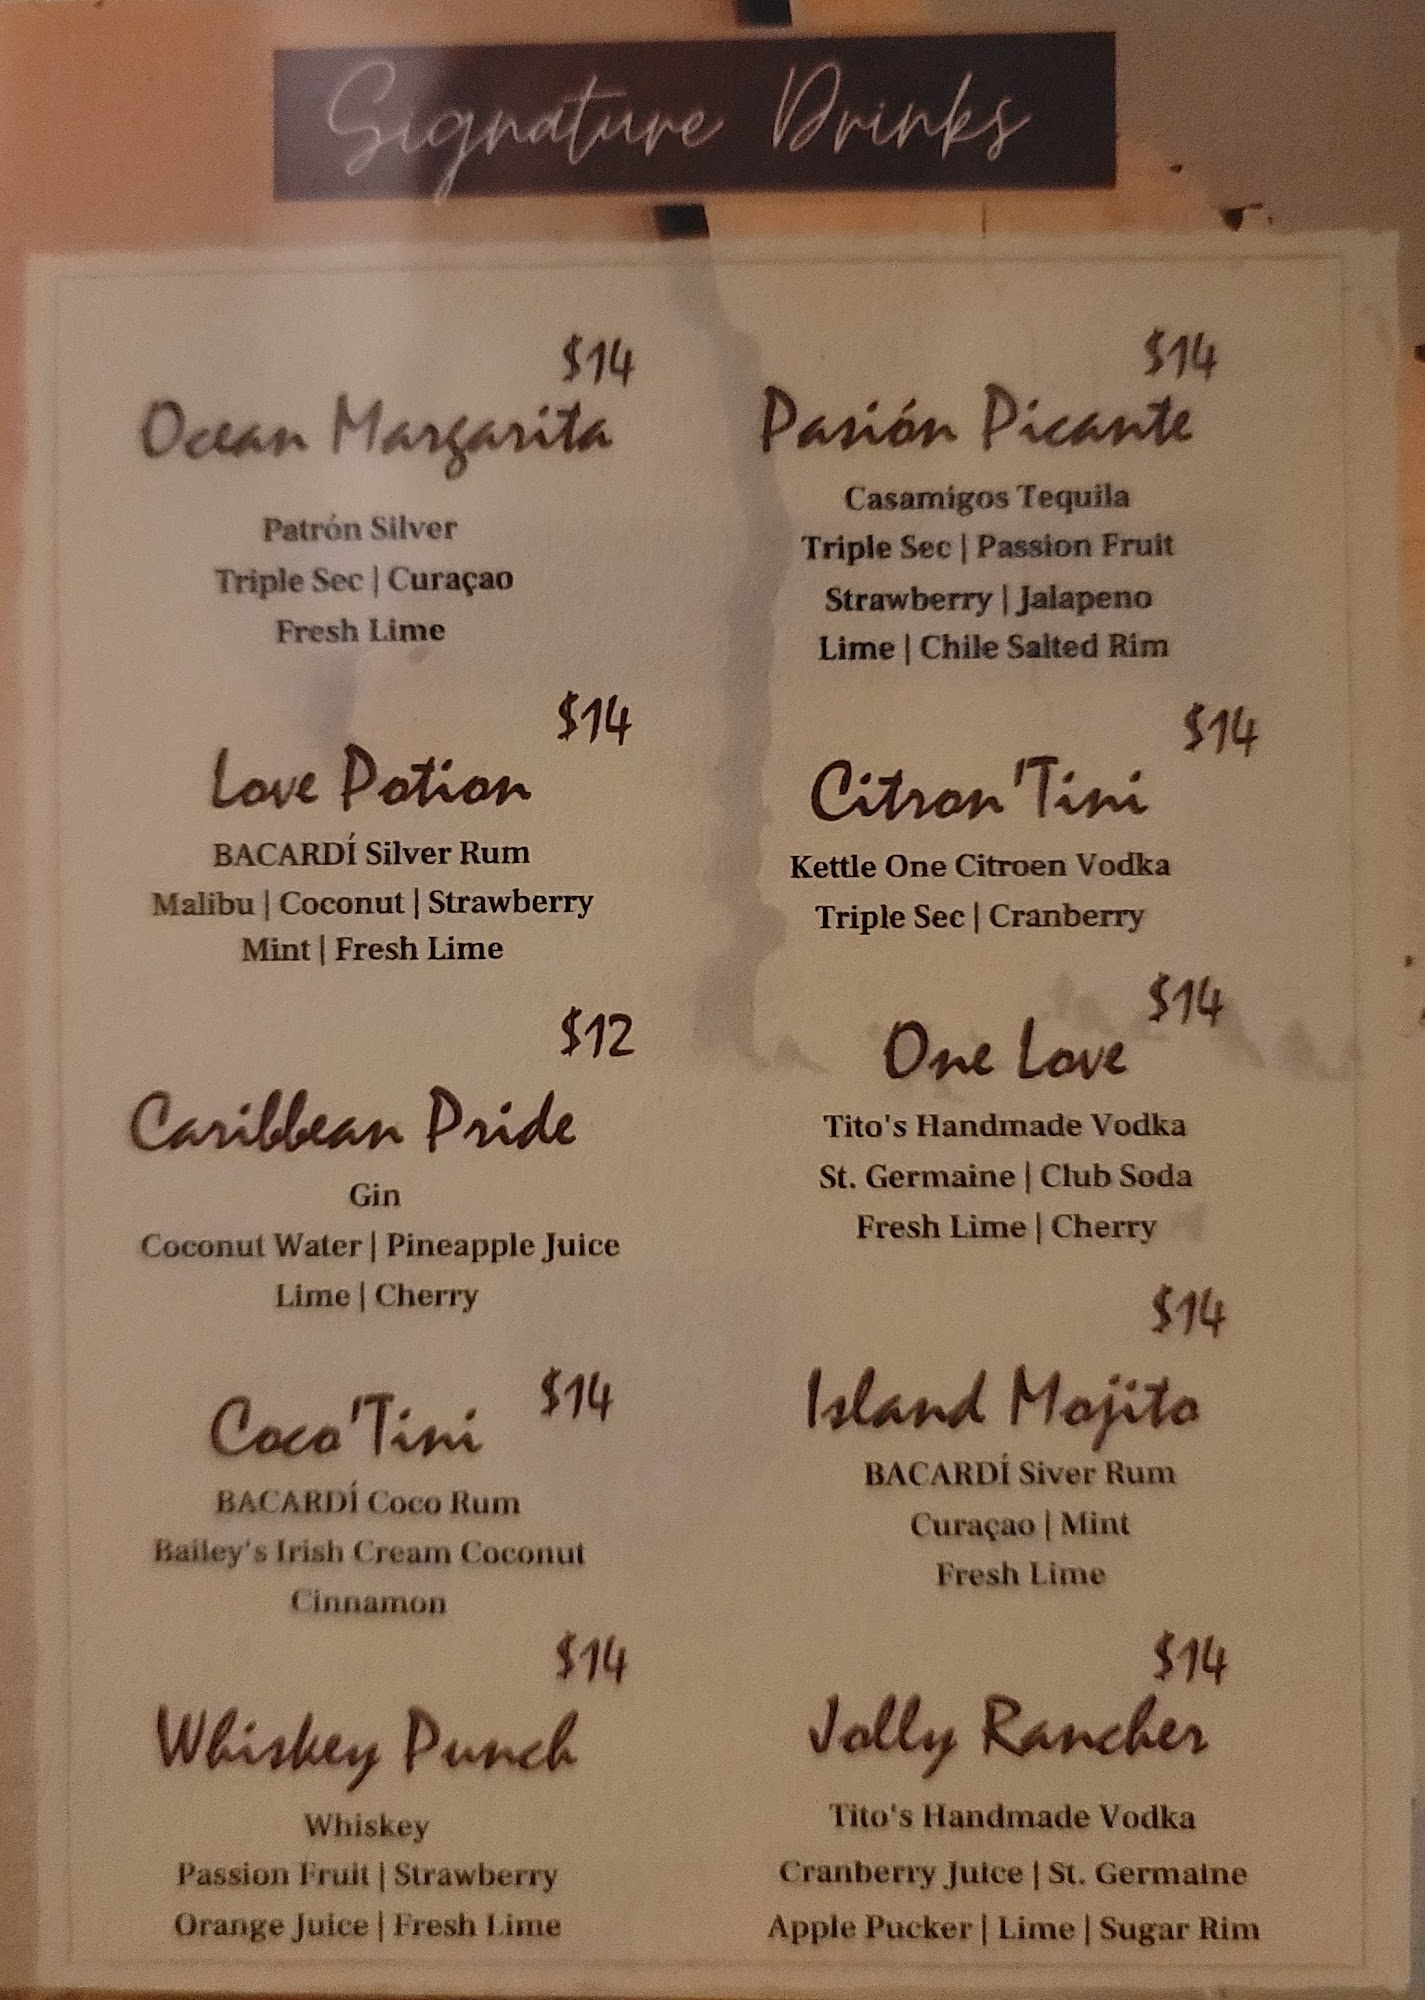 Signature Drinks
$14
Ocean Margarita
Patrón Silver
Triple Sec | Curaçao
Fresh Lime
$14
Love Potion
BACARDÍ Silver Rum
Malibu | Coconut | Strawberry
Mint | Fresh Lime
$12
Caribbean Pride
Gin
Coconut Water | Pineapple Juice
Lime | Cherry
$14
Coco'Tini
BACARDÍ Coco Rum
Bailey's Irish Cream Coconut
Cinnamon
$14
Whiskey Punch
Whiskey
Passion Fruit | Strawberry
Orange Juice | Fresh Lime
$14
Pasión Picante
Casamigos Tequila
Triple Sec | Passion Fruit
Strawberry | Jalapeno
Lime | Chile Salted Rim
$14
Citron'Tini
Kettle One Citroen Vodka
Triple Sec | Cranberry
$14
One Love
Tito's Handmade Vodka
St. Germaine | Club Soda
Fresh Lime | Cherry
$14
Island Mojito
BACARDÍ Siver Rum
Curaçao | Mint
Fresh Lime
$14
Jolly Rancher
Tito's Handmade Vodka
Cranberry Juice | St. Germaine
Apple Pucker | Lime | Sugar Rim